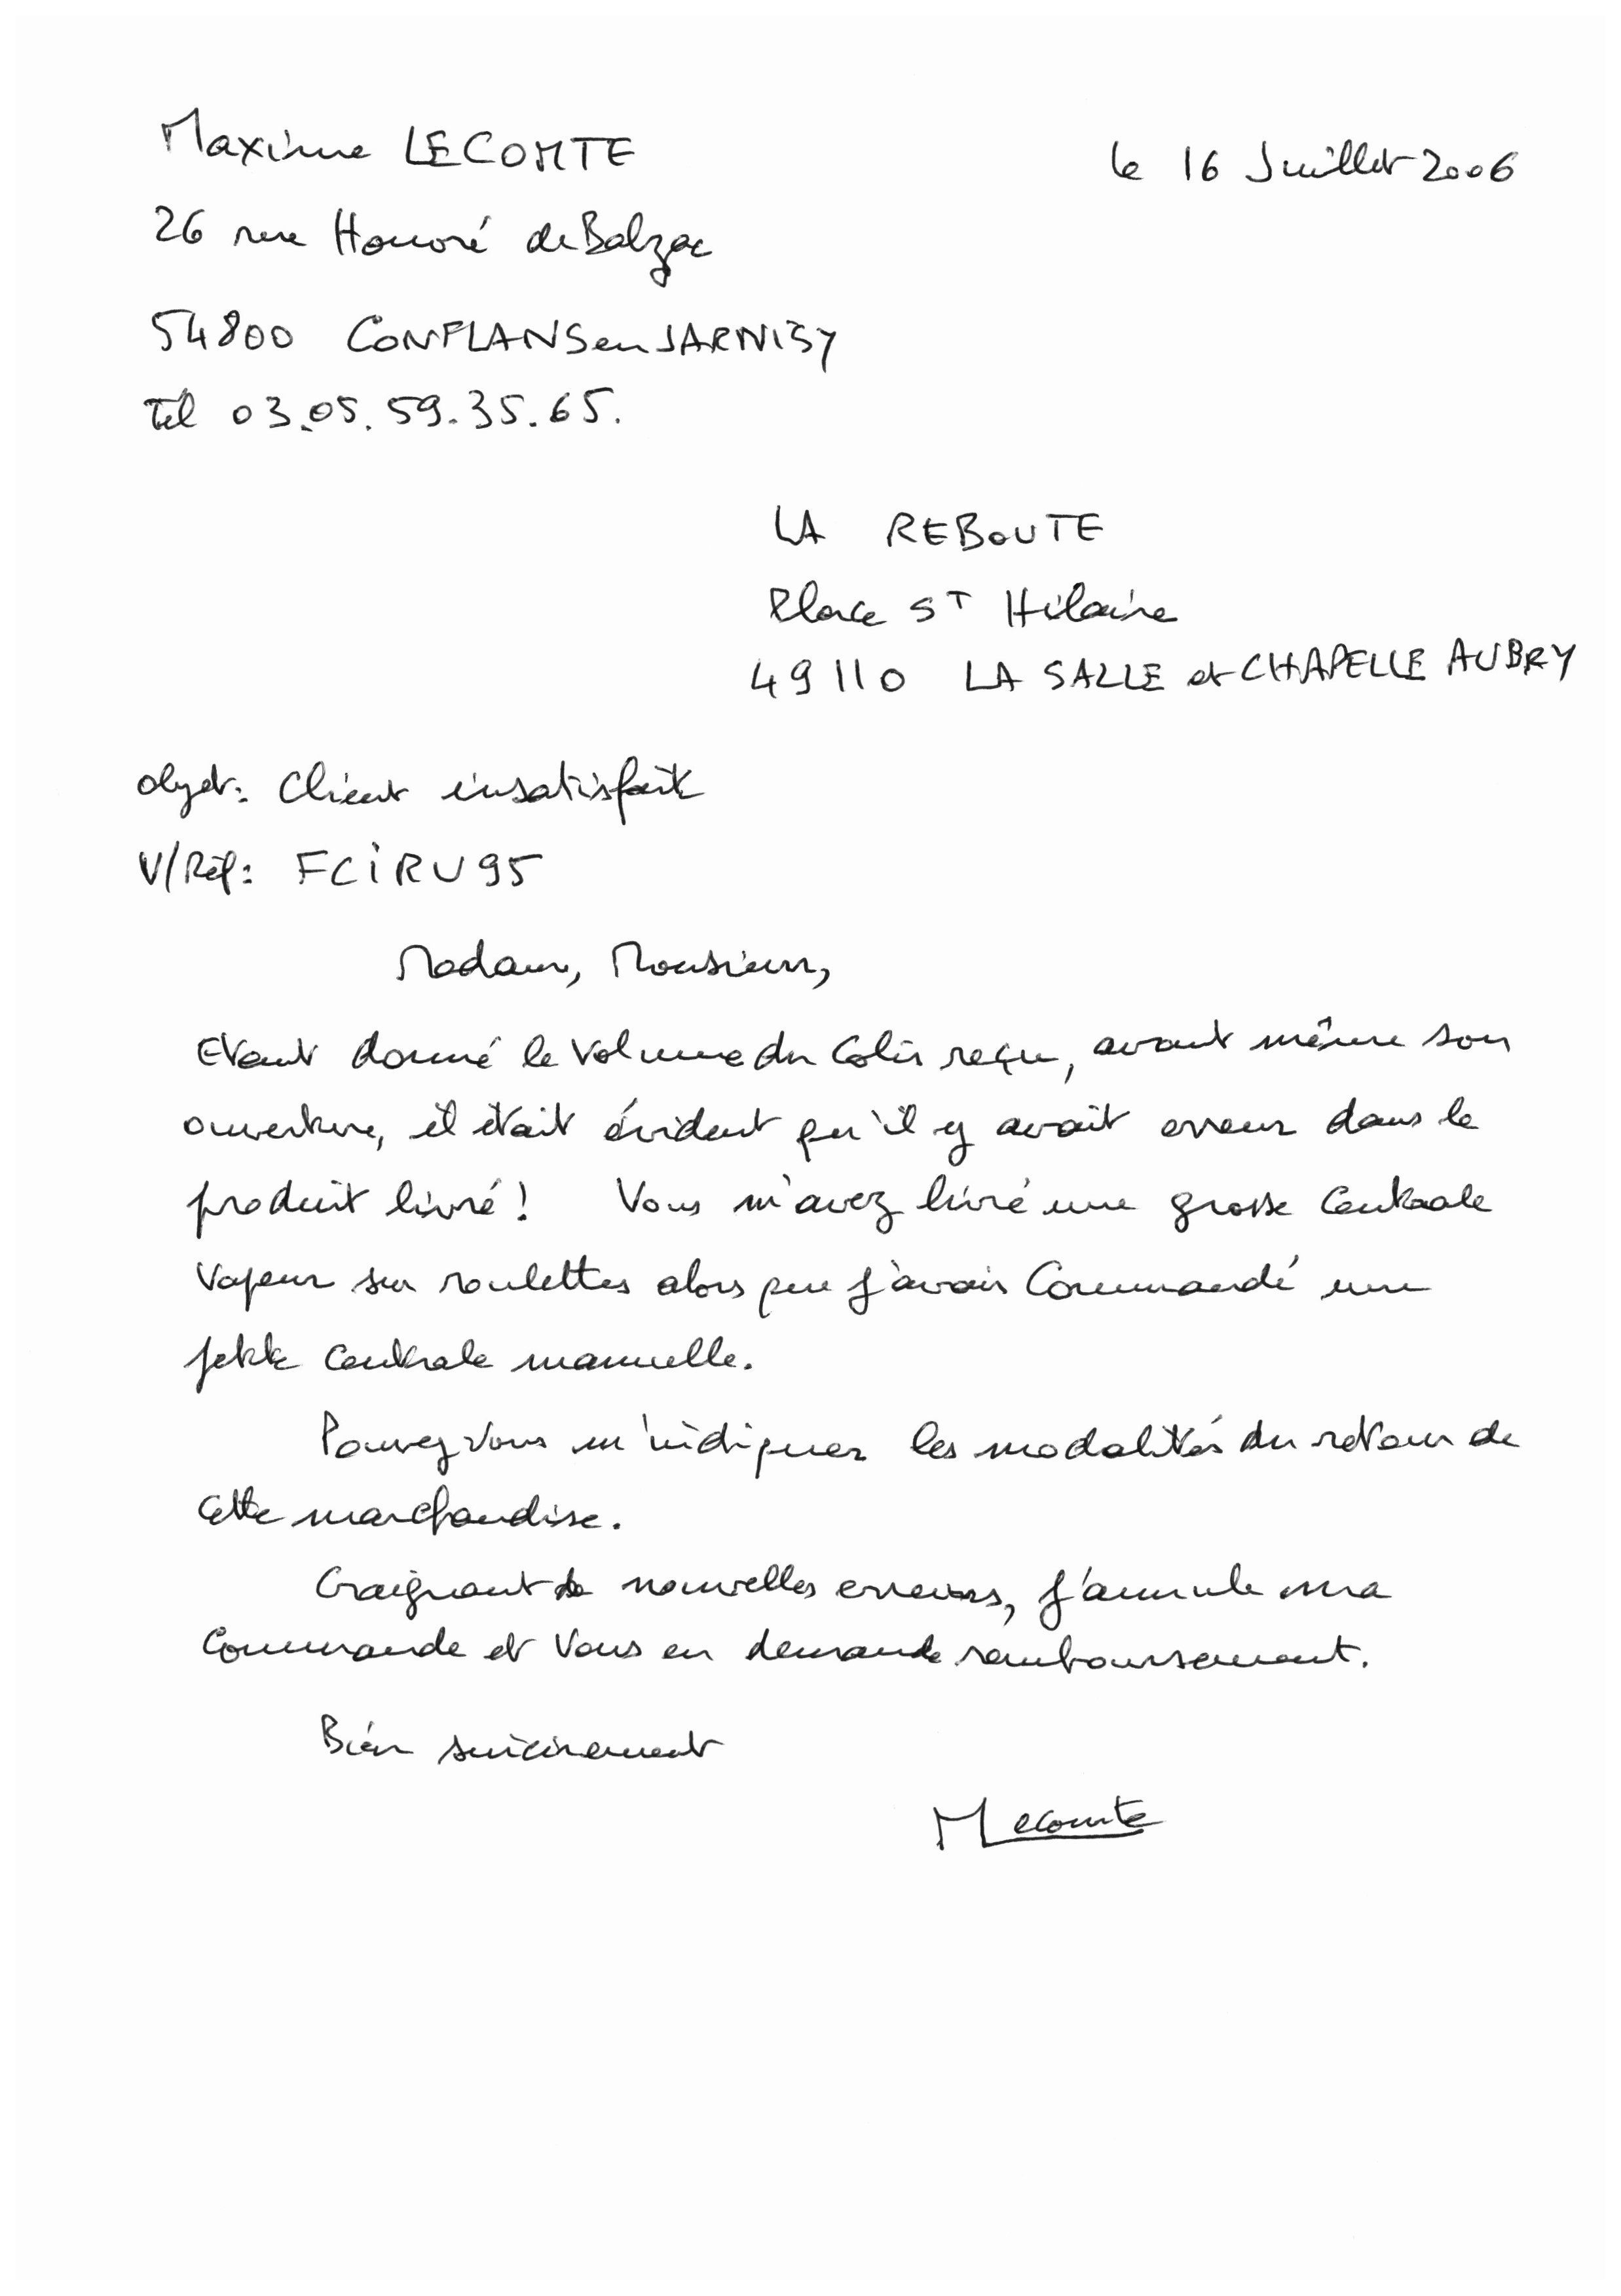 Maxime LECOMTE
le 16 Juillet 2006
26 rue Honoré de Balzac
54800 CONFLANS en JARNISY
Tél 03.05.59.35.65.
LA REBOUTE
Place ST Hilaire
49110 LA SALLE et CHAPELLE AUBRY
Objet: Client insatisfait
V/Réf: FCIRU95
Madame, Monsieur,
Etant donné le volume du colis reçu, avant même son
ouverture, il était évident qu'il y avait erreur dans le
produit livré! Vous m'avez livré une grosse centrale
vapeur sur roulettes alors que j'avais commandé une
petite centrale manuelle.
Pouvez vous m'indiquer les modalités du retour de
cette marchandise.
Craignant de nouvelles erreurs, j'annule ma
commande et vous en demande remboursement.
Bien sincèrement
MLecomte